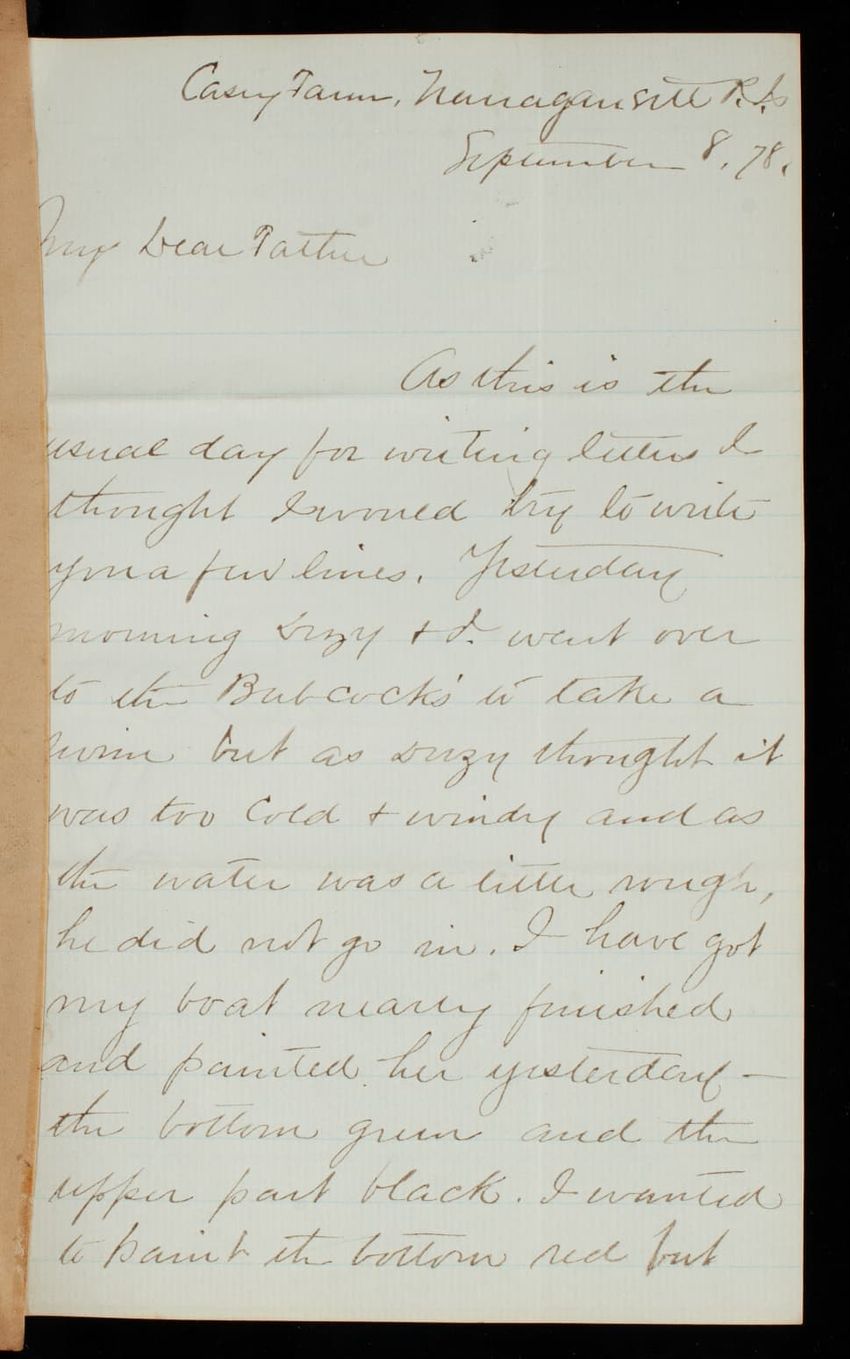 Casey Farm, Narragansett R.I.
September 8, 78.
My Dear Father
As this is the
usual day for writing letters I
thought I would try to write
you a few lines. Yesterday
morning Dezy + I. went over
to the Babcocks' to take a
swim but as Dezy thought it
was too cold + windy and as
the water was a little rough,
he did not go in. I have got
my boat nearly finished
and painted her yesterday -
the bottom green and the
upper part black. I wanted
to paint the bottom red but